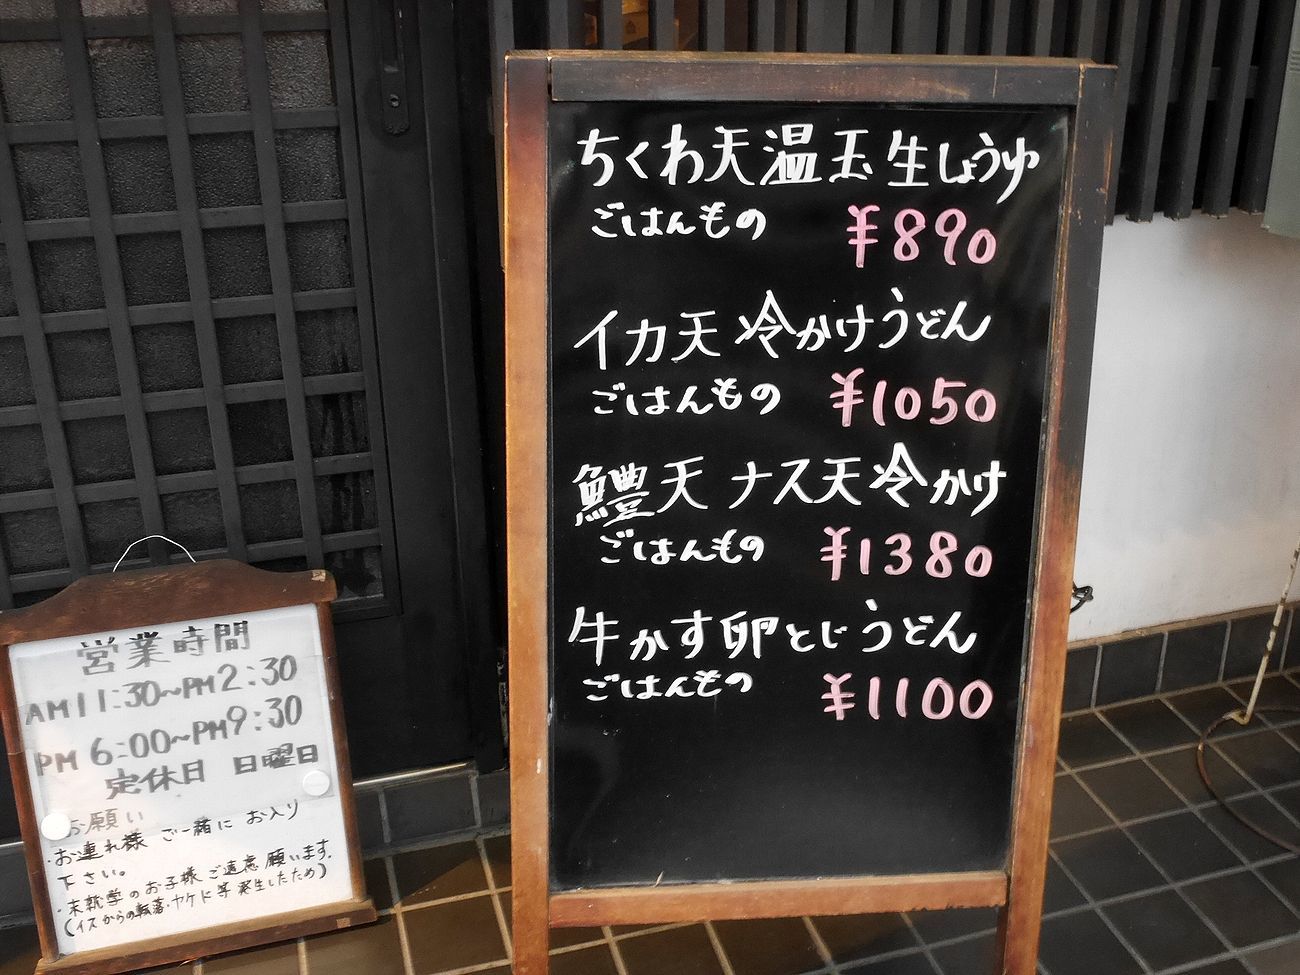 ちくわ天温玉生しょうゆ
ごはんもの ¥890
イカ天 冷かけうどん
ごはんもの ¥1050
鱧天 ナス天冷かけ
ごはんもの ¥1380
牛かす卵とじうどん
ごはんもの ¥1100
営業時間
AM11:30〜PM2:30
PM 6:00〜PM9:30
定休日 日曜日
お願い
・お連れ様 ご一緒に お入り
下さい。
・未就学のお子様ご遠慮願います。
(イスからの転落・ヤケド等発生したため)